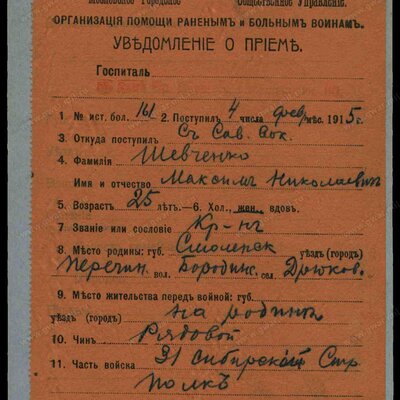 Московское Городское Общественное Управленіе.
ОРГАНИЗАЦІЯ ПОМОЩИ РАНЕНЫМЪ и БОЛЬНЫМЪ ВОИНАМЪ.
УВѢДОМЛЕНІЕ О ПРІЕМѢ.
Госпиталь
1. № ист. бол. 161 2. Поступил 4 числа фев мѣс. 1915 г.
3. Откуда поступил Съ Сав. Вок.
4. Фамилія Шевченко
Имя и отчество Максимъ Николаевичъ
5. Возраст 25 лѣт.—6. Хол., жен., вдов.
7. Званіе или сословіе Кр-нъ
8. Мѣсто родины: губ. Смоленск уѣзд (город)
Перечин. вол. Бородин. сел. Дрюков.
9. Мѣсто жительства передъ войной: губ.
уѣзд (город) на родинѣ
10. Чинъ Рядовой
11. Часть войска 31 сибирскій Стр.
полкъ